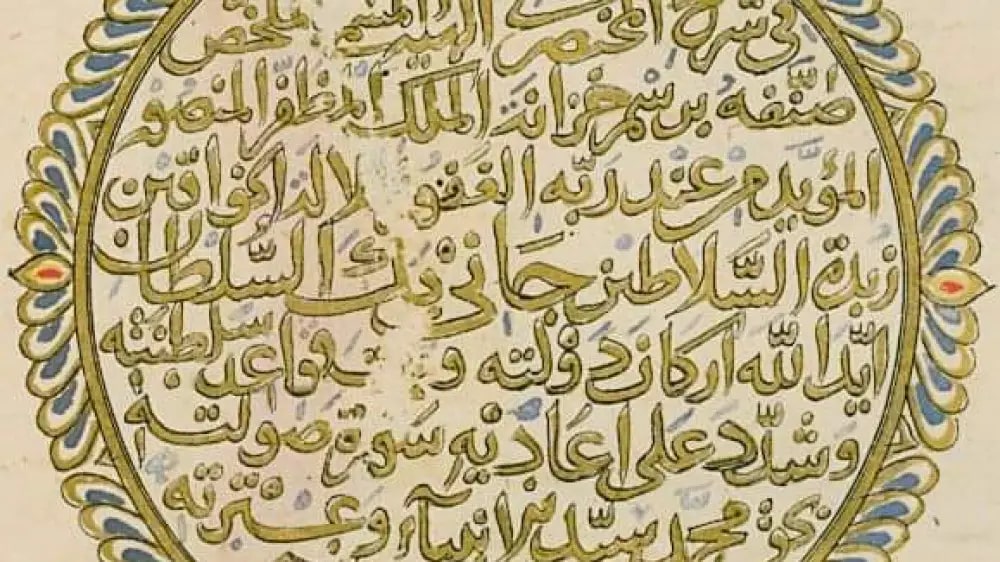 في شرح المختصر الملخص
صنفه برسم خزانة الملك المظفر المنصور
المؤيد من عند ربه الغفور
زبدة السلاطين جاني بك السلطان
ايد الله اركان دولته و قواعد سلطنته
وشدد على اعاديه سورة صولته
محمد سيد الانبياء وعترته